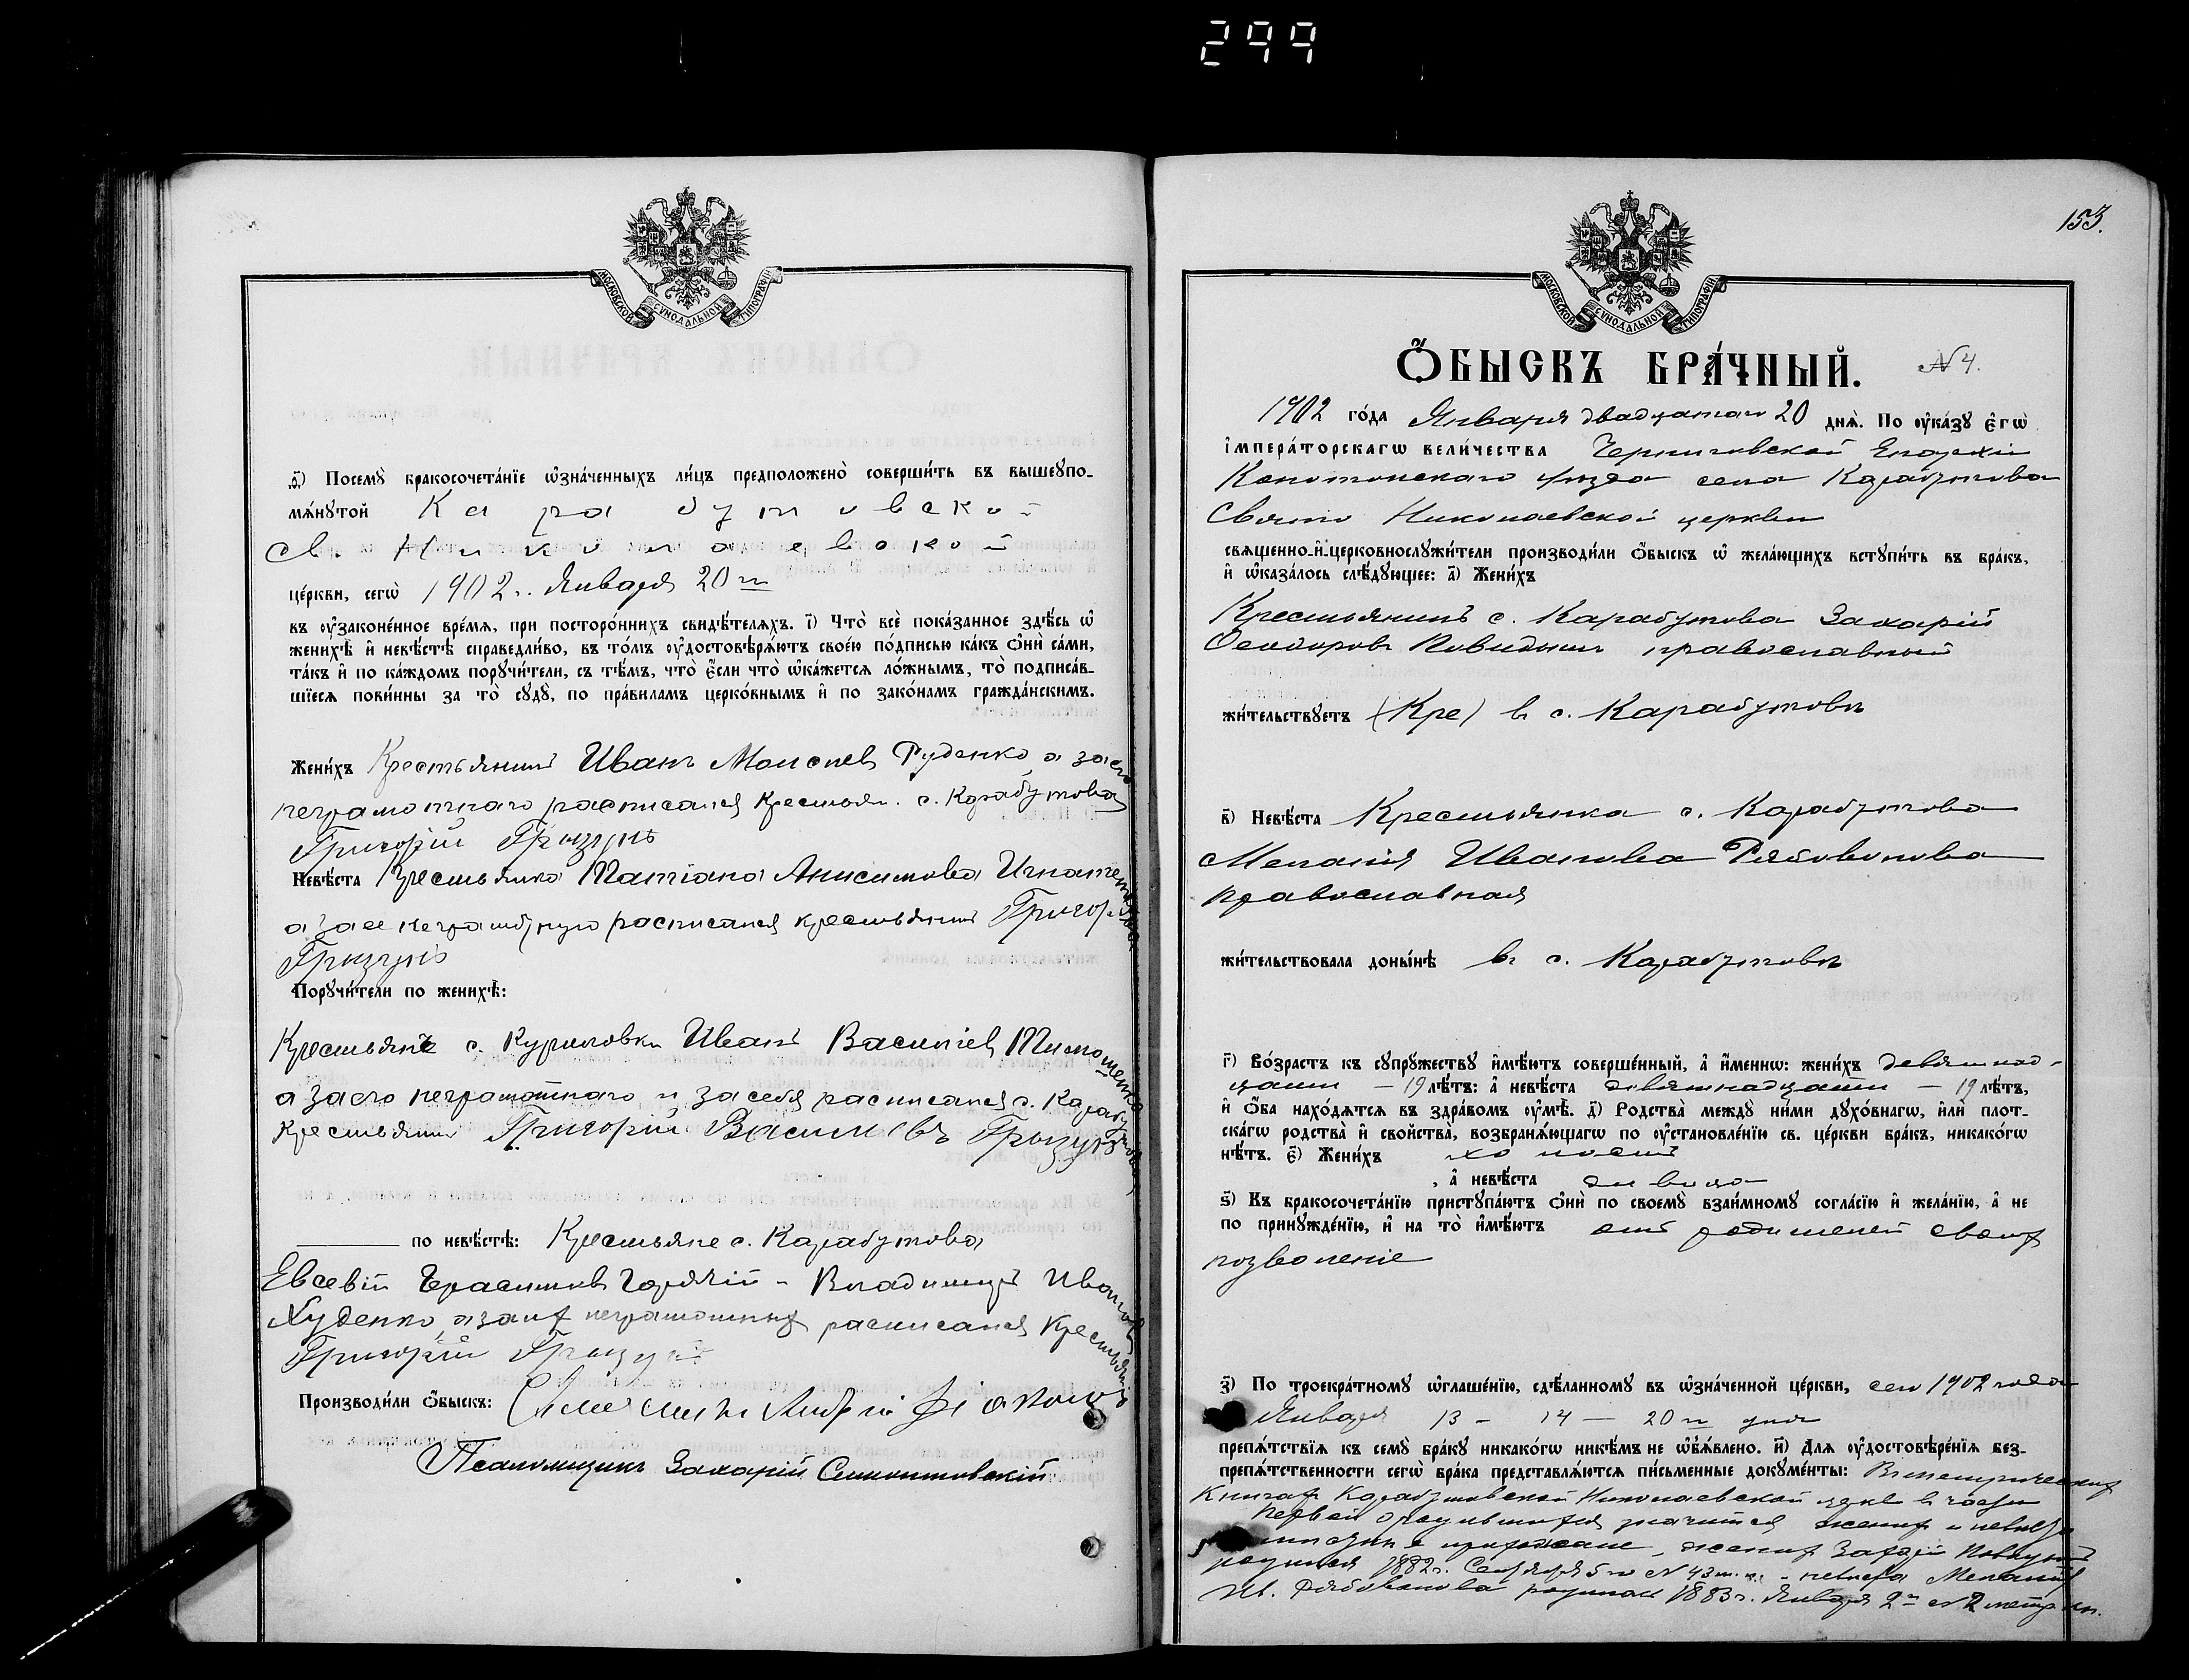 299
МОСКОВСКОЙ СѴНОДАЛЬНОЙ ТИПОГРАФІИ
ѳ҃) Посемꙋ̀ бракосочета́нїе ѡ҆зна́ченныхъ ли́цъ предположено̀ соверши́ть въ вышеꙋпо-
мѧ́нꙋтой Карабутовской
Св. Николаевской
це́ркви, сегѡ̀ 1902 г. Января 20 го
въ ᲂу҆законе́нное вре́мѧ, при посторо́ннихъ свидѣ́телѧхъ. і҃) Что̀ всѐ пока́занное здѣ́сь ѡ҆
женихѣ̀ и҆ невѣ́стѣ справедли́во, въ то́мъ ᲂу҆достовѣрѧ́ютъ свое́ю по́дписью ка́къ ѻ҆нѝ са́ми,
та́къ и҆ по ка́ждомъ порꙋчи́тели, съ тѣ́мъ, что̀ є҆́сли что̀ ѡ҆ка́жетсѧ ло́жнымъ, то̀ подписа́в-
шїесѧ пови́нны за то̀ сꙋдꙋ̀, по пра́виламъ церко́внымъ и҆ по зако́намъ гражда́нскимъ.
Жени́хъ Крестьянинъ Иванъ Моисеевъ Руденко, а за его
неграмотнаго расписался крестьян. с. Карабутова
Григорій Гризунъ
Невѣ́ста Крестьянка Татіана Анисимова Игнатенкова
а за ее неграмотную расписался крестьянинъ Григорій
Гризунъ
Порꙋчи́тели по женихѣ̀:
Крестьяне с. Куриловки Иванъ Васильевъ Тимошенко
а за его неграмотнаго и за себя расписался с. Карабутова
крестьянинъ Григорій Васильевъ Гризунъ
по невѣ́стѣ: Крестьяне с. Карабутова
Евсевій Герасимовъ Горячій и Владимиръ Ивановъ
Худенко, а за их неграмотных расписался крестьянинъ
Григорій Гризунъ
Производи́ли ѻ҆́быскъ: Священникъ Андрей
Псаломщикъ Захарій
153.
МОСКОВСКОЙ СѴНОДАЛЬНОЙ ТИПОГРАФІИ
Ѻ҆́БЫСКЪ БРА́ЧНЫЙ. № 4.
1902 го́да Января двадцатаго 20 днѧ̀. По ᲂу҆ка́зꙋ є҆гѡ̀
і҆мпера́торскагѡ вели́чества Черниговской Епархіи
Конотопскаго уѣзда села Карабутова
Свято Николаевской церкви
свѧще́нно-и҆-церковнослꙋжи́тели производи́ли ѻ҆́быскъ ѡ҆ жела́ющихъ встꙋпи́ть въ бра́къ,
и҆ ѡ҆каза́лось слѣ́дꙋющее: а҃) Жени́хъ
Крестьянинъ с. Карабутова Захарій
Феодоровъ православный
жи́тельствꙋетъ (Кре) въ с. Карабутовѣ
в҃) Невѣ́ста Крестьянка с. Карабутова
Меланія Иванова Рябоволова
православная
жи́тельствовала доны́нѣ въ с. Карабутовѣ
г҃) Во́зрастъ къ сꙋпрꙋ́жествꙋ и҆мѣ́ютъ соверше́нный, а҆ и҆́меннѡ: жени́хъ девятнад-
цати – 19 лѣ́тъ: а҆ невѣ́ста девятнадцати – 19 лѣ́тъ,
и҆ ѻ҆́ба нахо́дѧтсѧ въ здра́вомъ ᲂу҆мѣ̀. д҃) Родства̀ междꙋ̀ ни́ми дꙋхо́внагѡ, и҆лѝ плот-
ска́гѡ родства̀ и҆ сво́йства̀, возбранѧ́ющагѡ по ᲂу҆становле́нїю св. це́ркви бра́къ, никако́гѡ
нѣ́тъ. є҃) Жени́хъ холостъ
, а҆ невѣ́ста дѣвица
ѕ҃) Къ бракосочета́нїю пристꙋпа́ютъ ѻ҆нѝ по своемꙋ̀ взаи́мномꙋ согла́сїю и҆ жела́нїю, а҆ не
по принꙋжде́нїю, и҆ на то̀ и҆мѣ́ютъ отъ родителей своих
позволеніе
з҃) По троекра́тномꙋ ѡ҆глаше́нїю, сдѣ́ланномꙋ въ ѡ҆зна́ченной це́ркви, сего 1902 года
Января 13 – 14 – 20 го дня
препѧ́тствїѧ къ семꙋ̀ бра́кꙋ никако́гѡ никѣ́мъ не ѡ҆б̾ѧ́влено. и҃) Длѧ ᲂу҆достовѣре́нїѧ без-
препѧ́тственности сегѡ̀ бра́ка представлѧ́ютсѧ пи́сьменные докꙋме́нты: В метрических
Книгах Карабутовской Николаевской церкв в части
первой о родившихся значится жених и невѣста
прихожане, жених Захарій
родился 1882 г. Сентября 5 го № 43 невѣста Меланія
Ив. Рябоволова родилась 1883 г. Января 2 го № 2